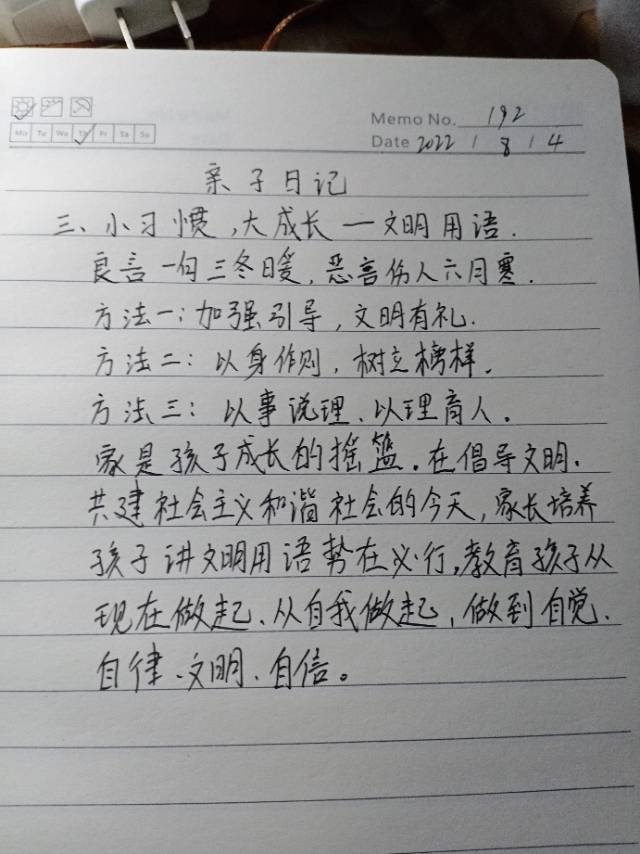 Memo No. 192
Mo Tu We Th Fr Sa Su
Date 2022 / 8 / 4
亲子日记
三、小习惯,大成长一文明用语.
良言一句三冬暖,恶言伤人六月寒.
方法一:加强引导,文明有礼.
方法二:以身作则,树立榜样.
方法三:以事说理、以理育人.
家是孩子成长的摇篮。在倡导文明、
共建社会主义和谐社会的今天,家长培养
孩子讲文明用语势在必行,教育孩子从
现在做起、从自我做起,做到自觉、
自律、文明、自信。